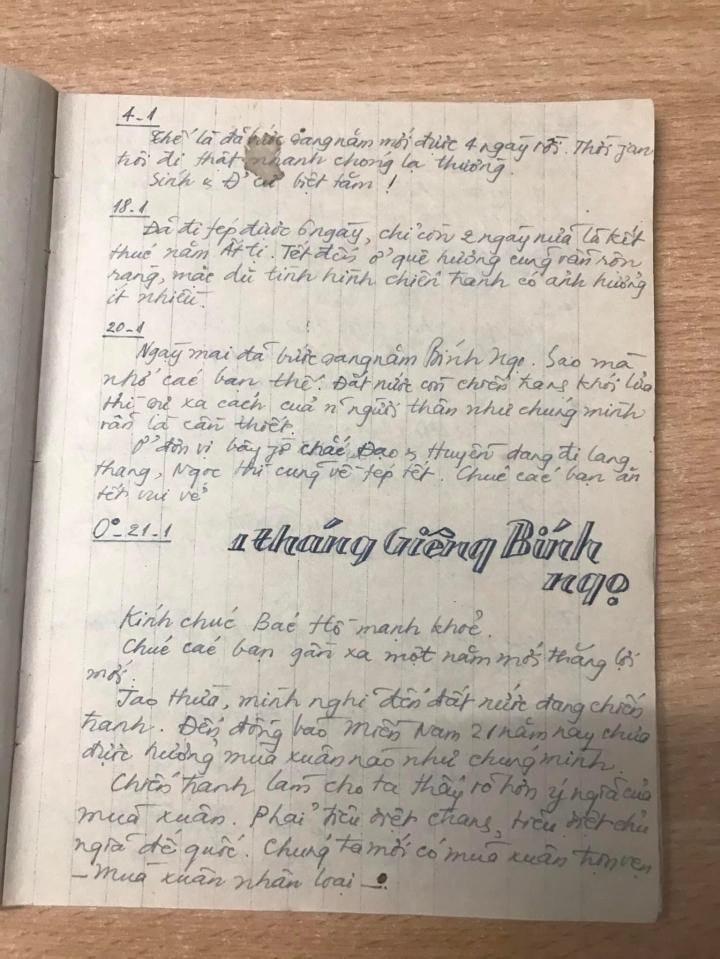 4-1
Thế là đã bước sang năm mới được 4 ngày rồi. Thời jan
trôi đi thật nhanh chóng lạ thường.
Sinh & Đ cứ biệt tăm!
18.1
Đã đi fép được 6 ngày, chỉ còn 2 ngày nữa là kết
thúc năm Ất tị. Tết đến ở quê hương cũng vẫn rộn
ràng, mặc dù tình hình chiến tranh có ảnh hưởng
ít nhiều.
20-1
Ngày mai đã bước sang năm Bính Ngọ. Sao mà
nhớ các bạn thế. Đất nước còn chiến tranh khói lửa
thì sự xa cách của n~ người thân như chúng mình
vẫn là cần thiết.
Ở đơn vị bây jờ chắc Đạo & Huyền đang đi lang
thang, Ngọc thì cũng về fép tết. Chúc các bạn ăn
tết vui vẻ
0°-21-1
1 tháng Giêng Bính
ngọ
Kính chúc Bác Hồ mạnh khoẻ.
Chúc các bạn gần xa một năm mới thắng lợi
mới.
Jao thừa, mình nghĩ đến đất nước đang chiến
tranh. Đến đồng bào Miền Nam 21 năm nay chưa
được hưởng mùa xuân nào như chúng mình.
Chiến tranh làm cho ta thấy rõ hơn ý ngĩa của
mùa xuân. Phải tiêu diệt chúng, tiêu diệt chủ
ngĩa đế quốc. Chúng ta mới có mùa xuân trọn vẹn
- Mùa xuân nhân loại -.